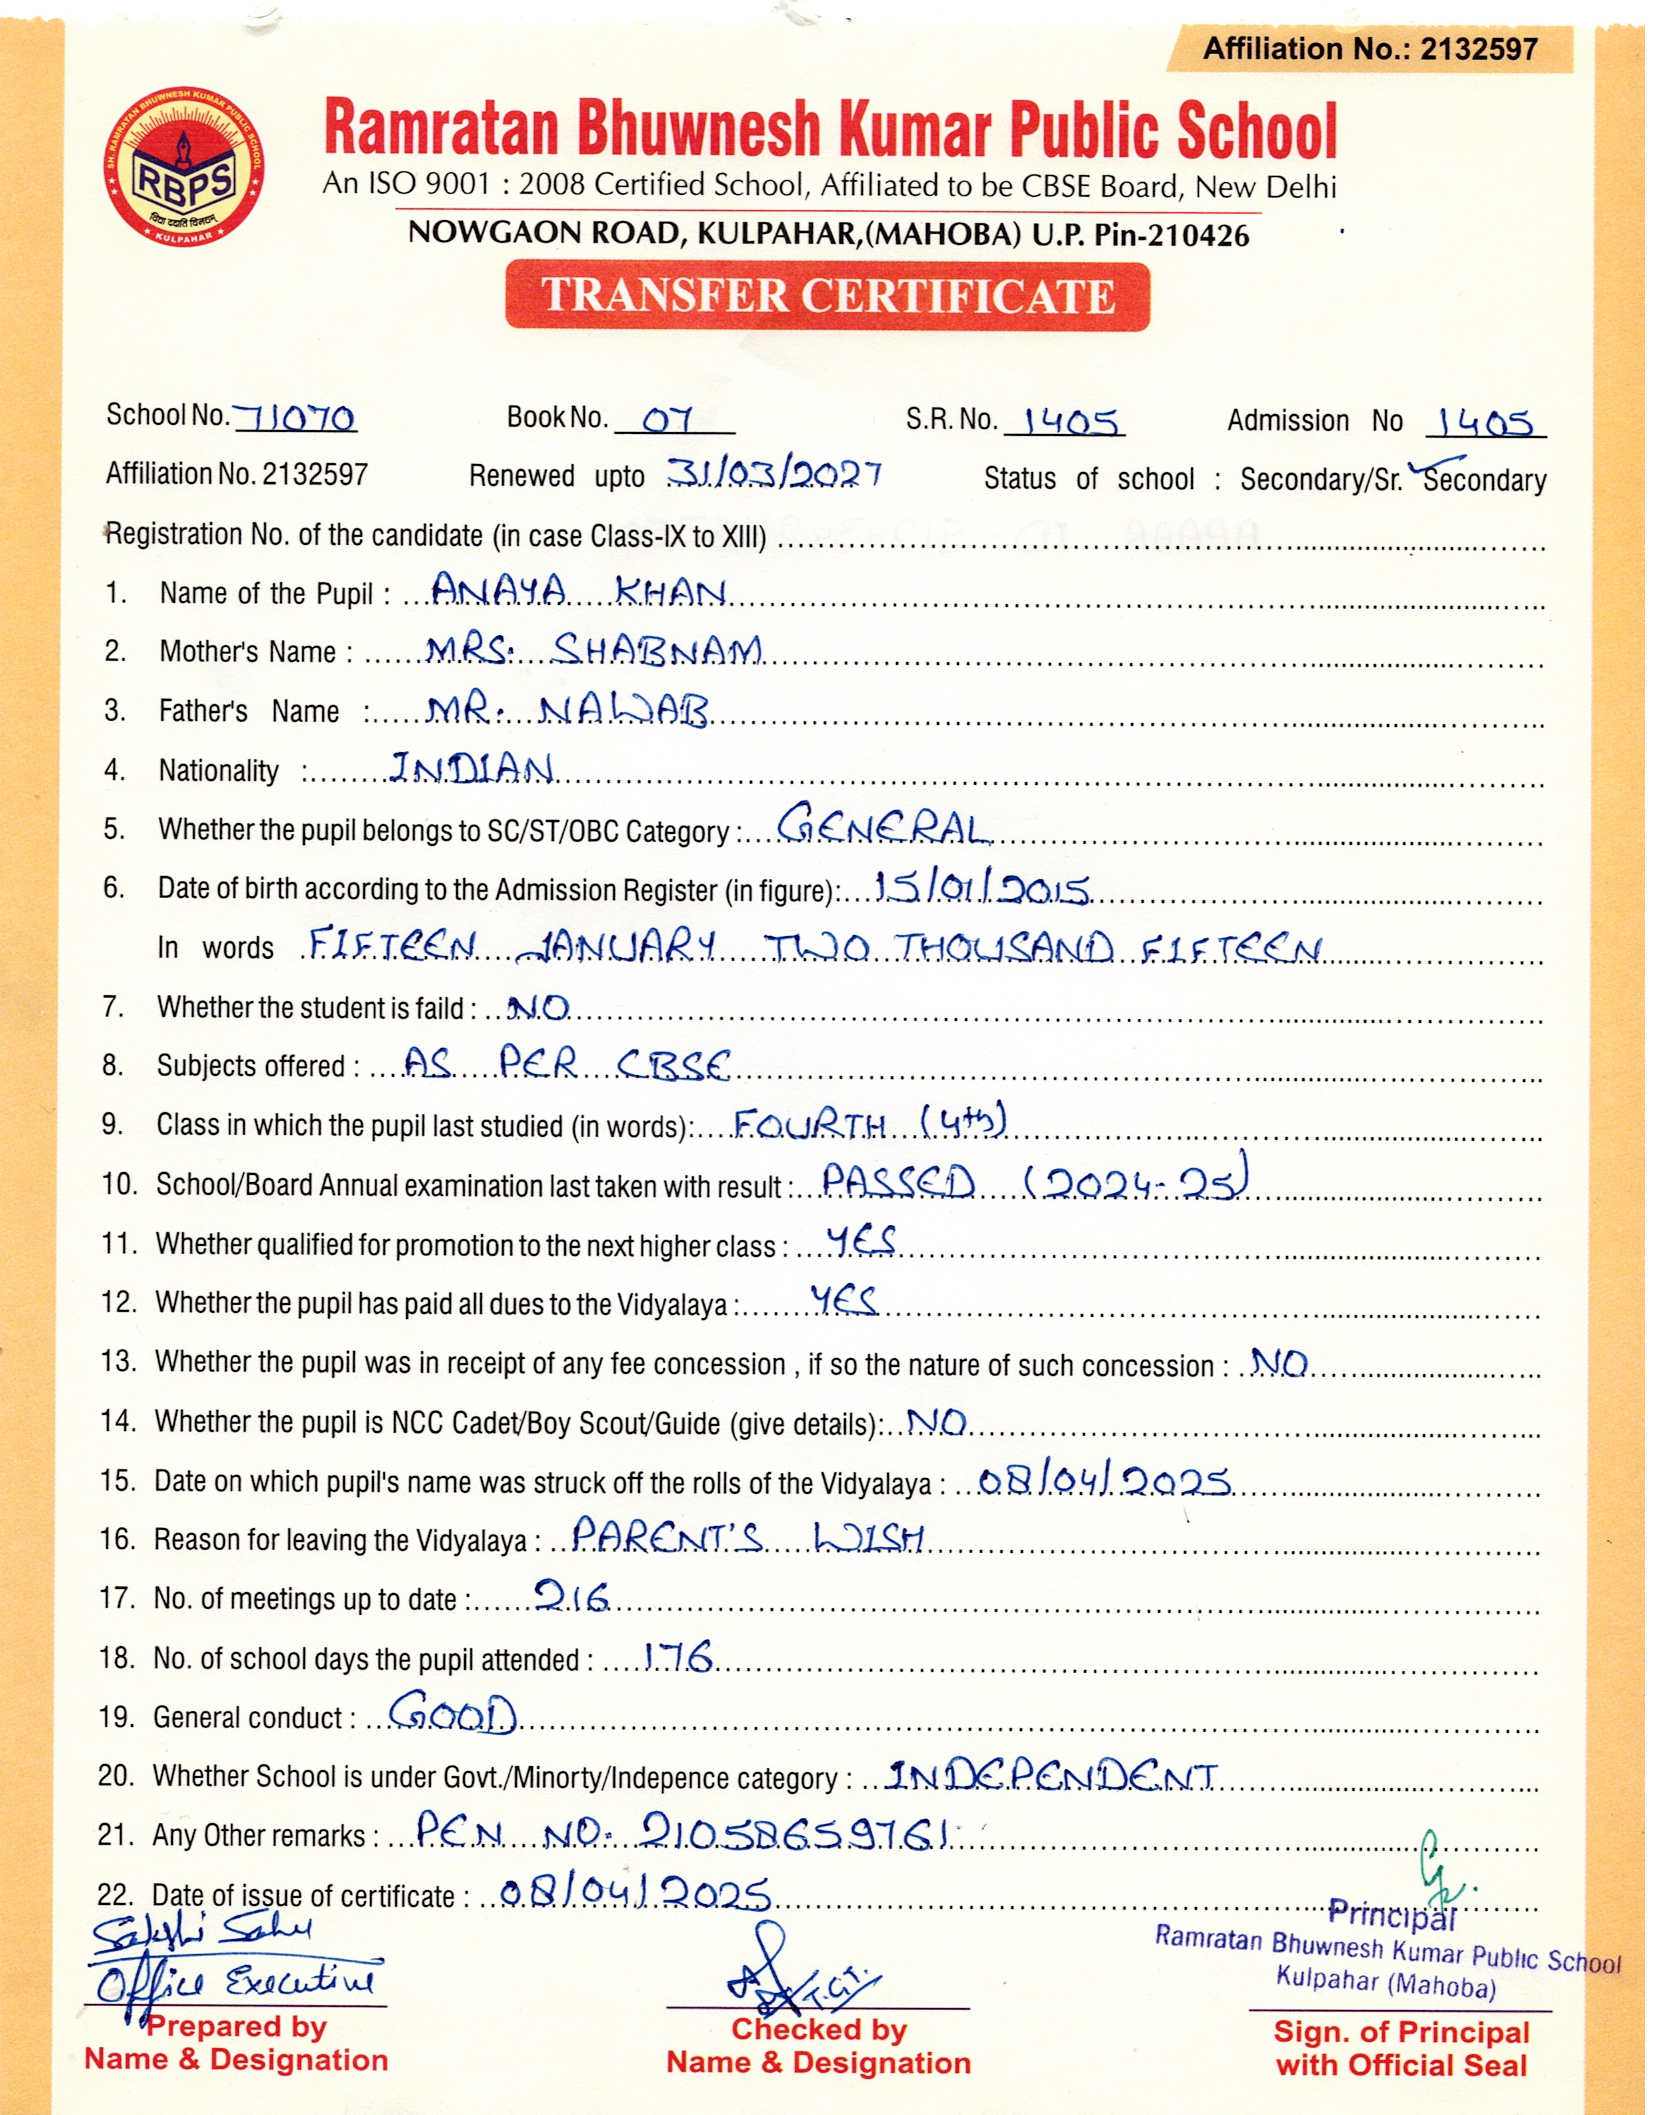 Affiliation No.: 2132597
SH. RAMRATAN BHUWNESH KUMAR PUBLIC SCHOOL
RBPS
विद्या ददाति विनयम्
KULPAHAR
Ramratan Bhuwnesh Kumar Public School
An ISO 9001 : 2008 Certified School, Affiliated to be CBSE Board, New Delhi
NOWGAON ROAD, KULPAHAR,(MAHOBA) U.P. Pin-210426
TRANSFER CERTIFICATE
School No. 71070 Book No. 07 S.R. No. 1405 Admission No 1405
Affiliation No. 2132597 Renewed upto 31/03/2027 Status of school : Secondary/Sr. Secondary
Registration No. of the candidate (in case Class-IX to XIII)
1. Name of the Pupil : ANAYA KHAN
2. Mother's Name : MRS. SHABNAM
3. Father's Name : MR. NAWAB
4. Nationality : INDIAN
5. Whether the pupil belongs to SC/ST/OBC Category : GENERAL
6. Date of birth according to the Admission Register (in figure): 15/01/2015
In words FIFTEEN JANUARY TWO THOUSAND FIFTEEN
7. Whether the student is faild : NO
8. Subjects offered : AS PER CBSE
9. Class in which the pupil last studied (in words): FOURTH (4th)
10. School/Board Annual examination last taken with result : PASSED (2024-25)
11. Whether qualified for promotion to the next higher class : YES
12. Whether the pupil has paid all dues to the Vidyalaya : YES
13. Whether the pupil was in receipt of any fee concession , if so the nature of such concession : NO
14. Whether the pupil is NCC Cadet/Boy Scout/Guide (give details): NO
15. Date on which pupil's name was struck off the rolls of the Vidyalaya : 08/04/2025
16. Reason for leaving the Vidyalaya : PARENT'S WISH
17. No. of meetings up to date : 216
18. No. of school days the pupil attended : 176
19. General conduct : GOOD
20. Whether School is under Govt./Minorty/Indepence category : INDEPENDENT
21. Any Other remarks : PEN NO. 21058659761
22. Date of issue of certificate : 08/04/2025
Sakshi Sahu
Office Executive
T.G.T.
Principal
Ramratan Bhuwnesh Kumar Public School
Kulpahar (Mahoba)
Prepared by
Name & Designation
Checked by
Name & Designation
Sign. of Principal
with Official Seal